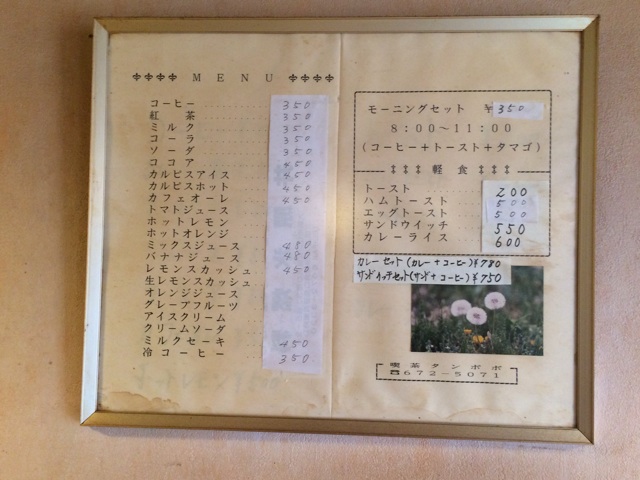 MENU
コーヒー 350
紅茶 350
ミルク 350
コーラ 350
ソーダ 350
ココア 450
カルピスアイス 450
カルピスホット 450
カフェオーレ 450
トマトジュース
ホットレモン
ホットオレンジ
ミックスジュース 450
バナナジュース 480
レモンスカッシュ 450
生レモンスカッシュ
オレンジジュース
グレープフルーツ
アイスクリーム
クリームソーダ
ミルクセーキ 450
冷コーヒー 350
モーニングセット ¥350
8:00〜11:00
(コーヒー+トースト+タマゴ)
軽食
トースト 200
ハムトースト 500
エッグトースト 500
サンドウイッチ 550
カレーライス 600
カレーセット(カレー+コーヒー)¥780
サンドイッチセット(サンド+コーヒー)¥750
喫茶タンポポ
☎672-5071